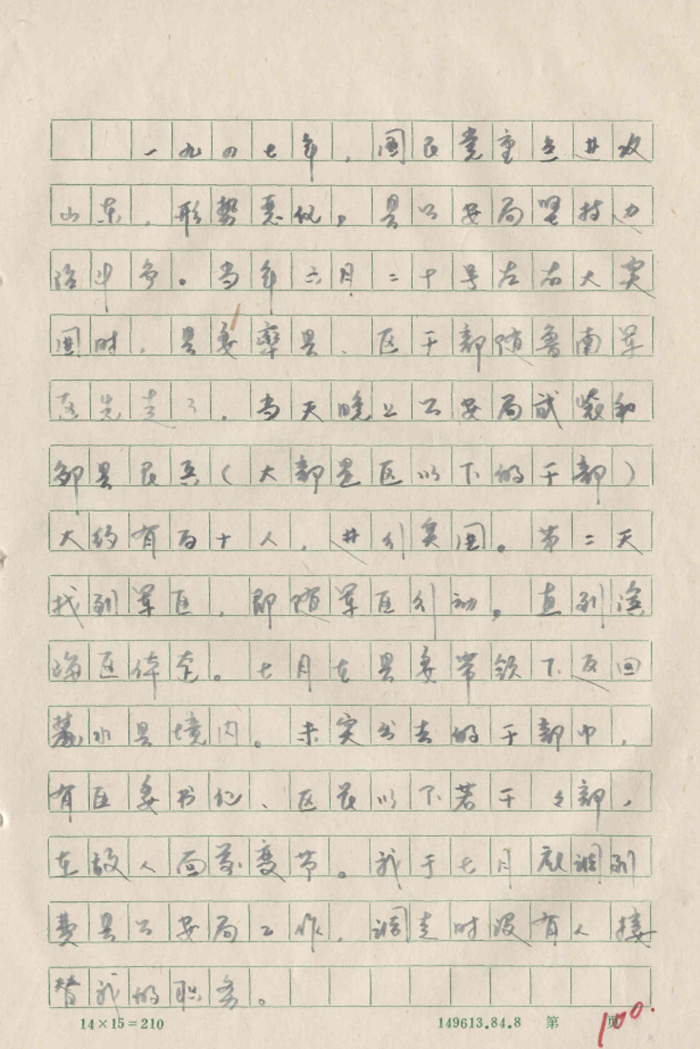 一九四七年,国民党重点进攻
山东,形势恶化。县公安局坚持力
治斗争。当年六月二十号左右大突
围时,县委率县、区干部随鲁南军
区先走了,当天晚上公安局武装和
邹县民兵(大部是区以下的干部)
大约有百十人,进行突围。第二天
找到军区,即随军区行动,直到滨
海区停止。七月在县委带领下反回
麓水县境内。未突出去的干部中,
有区委书记、区长以下若干干部,
在敌人面前变节。我于七月就调到
费县公安局工作,调走时没有人接
替我的职务。
14×15=210
149613.84.8 第 页
100.